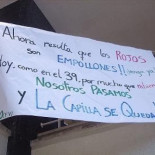 Ahora resulta que los ROJOS
son EMPOLLONES!!
Hoy, como en el 39, por mucho que
NOSOTROS PASAMOS
y LA CAPILLA SE QUEDA